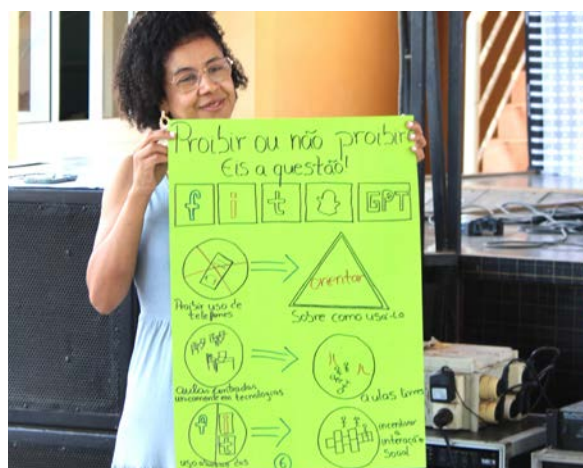 Proibir ou não proibir
Eis a questão!
f i t GPT
Proibir uso de
telefones
orientar
Sobre como usá-lo
aulas centradas
unicamente em tecnologias
aulas livres
f i t
uso abusivo das
incentivar
a
interação
social
6